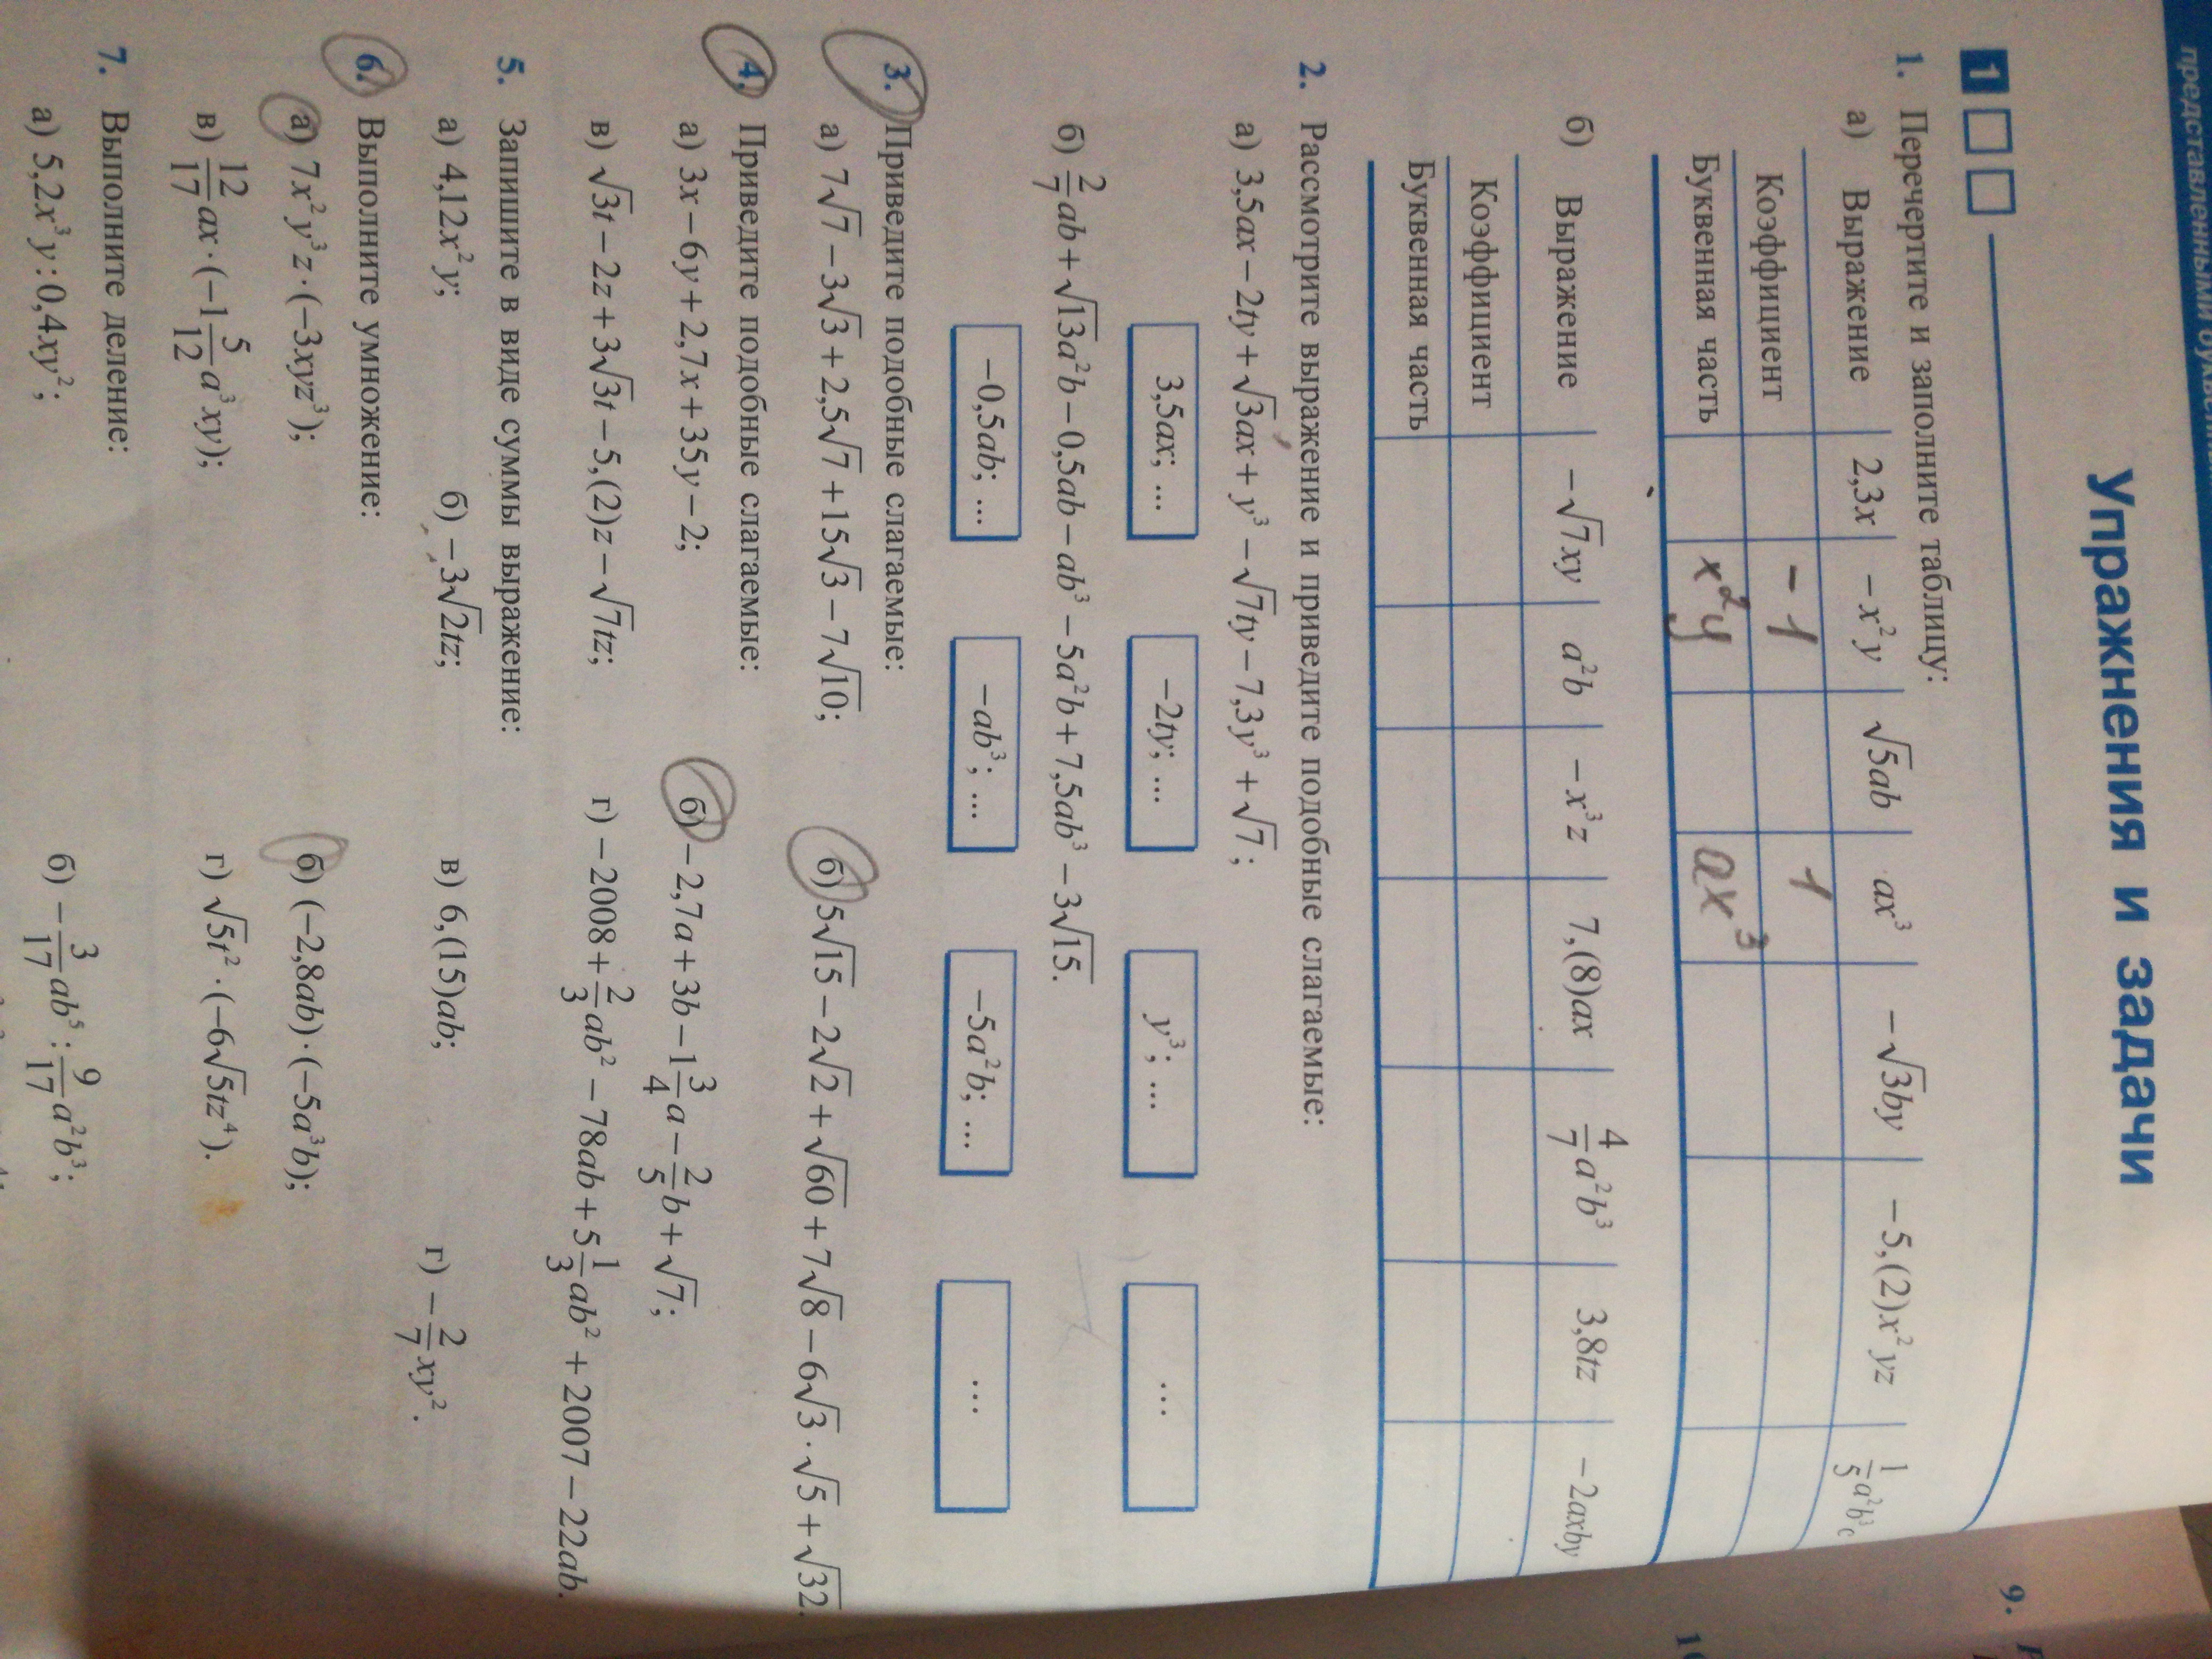 представленными
Упражнения и задачи
1
1. Перечертите и заполните таблицу:
а) Выражение 2,3x −x²y √5ab ax³ −√3by −5,(2)x²yz 1/5 a²b³c
Коэффициент −1 1
Буквенная часть x²y ax³
б) Выражение −√7xy a²b −x³z 7,(8)ax 4/7 a²b³ 3,8tz −2axby
Коэффициент
Буквенная часть
2. Рассмотрите выражение и приведите подобные слагаемые:
а) 3,5ax − 2ty + √3ax + y³ − √7ty − 7,3y³ + √7;
3,5ax; ... −2ty; ... y³; ... ...
б) 2/7 ab + √13a²b − 0,5ab − ab³ − 5a²b + 7,5ab³ − 3√15.
−0,5ab; ... −ab³; ... −5a²b; ... ...
3. Приведите подобные слагаемые:
а) 7√7 − 3√3 + 2,5√7 + 15√3 − 7√10; б) 5√15 − 2√2 + √60 + 7√8 − 6√3·√5 + √32.
4. Приведите подобные слагаемые:
а) 3x − 6y + 2,7x + 35y − 2; б) −2,7a + 3b − 1 3/4 a − 2/5 b + √7;
в) √3t − 2z + 3√3t − 5,(2)z − √7tz; г) −2008 + 2/3 ab² − 78ab + 5 1/3 ab² + 2007 − 22ab.
5. Запишите в виде суммы выражение:
а) 4,12x²y; б) −3√2tz; в) 6,(15)ab; г) −2/7 xy².
6. Выполните умножение:
а) 7x²y³z·(−3xyz³); б) (−2,8ab)·(−5a³b);
в) 12/17 ax·(−1 5/12 a³xy); г) √5t²·(−6√5tz⁴).
7. Выполните деление:
а) 5,2x³y : 0,4xy²; б) −3/17 ab⁵ : 9/17 a²b³;
9.